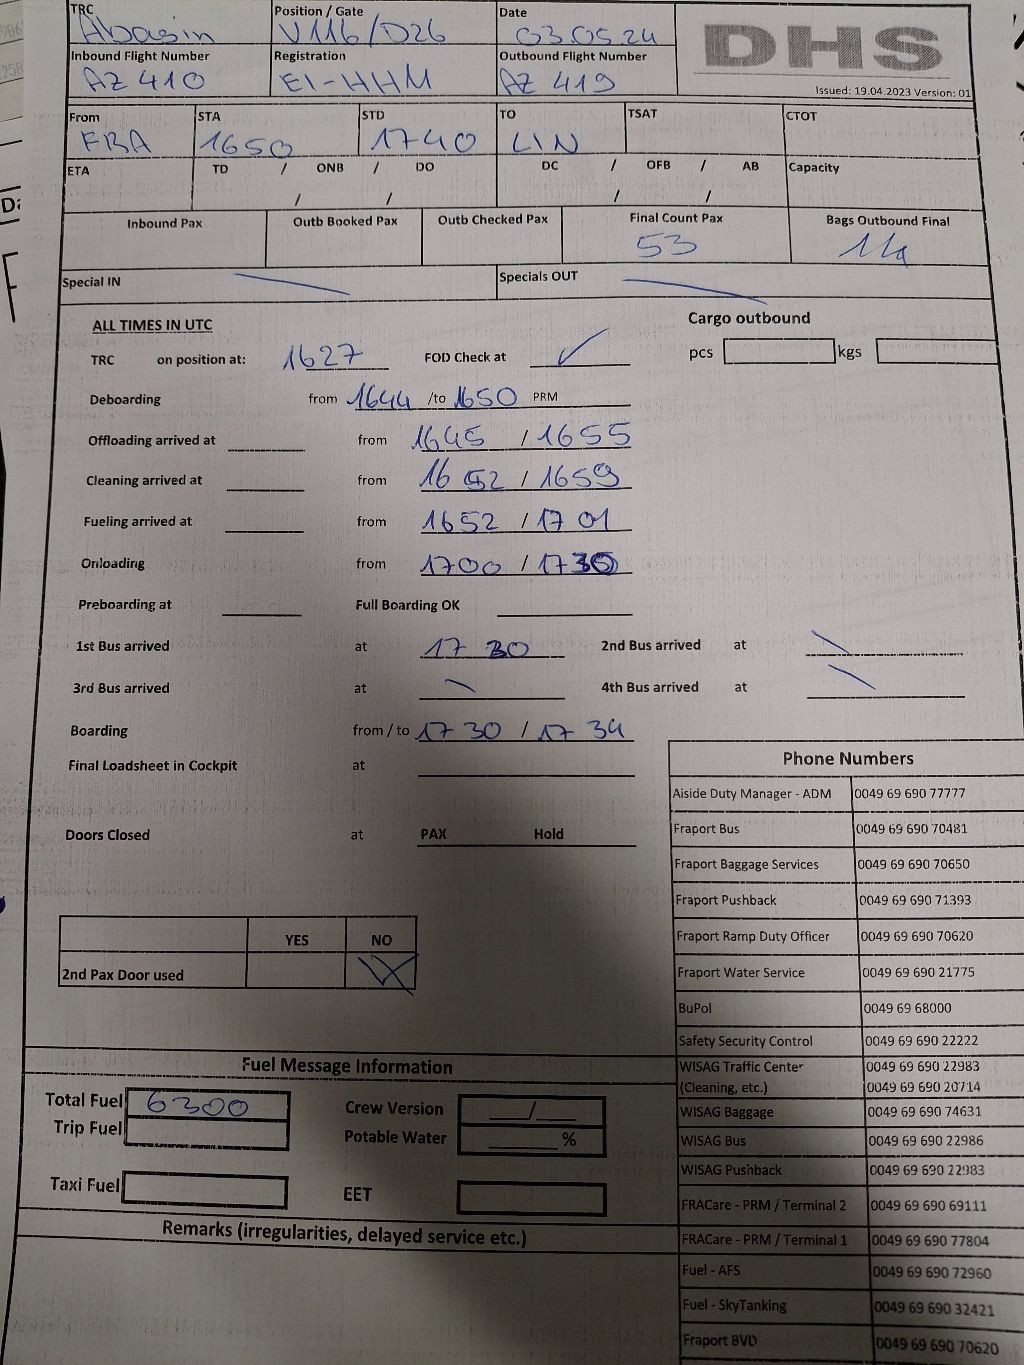 TRC Position / Gate Date
Abasin V116/D26 03.05.24
DHS
Inbound Flight Number Registration Outbound Flight Number
AZ 410 EI-HHM AZ 419
Issued: 19.04.2023 Version: 01
From STA STD TO TSAT CTOT
FRA 1650 1740 LIN
ETA TD / ONB / DO DC / OFB / AB Capacity
/ / / /
Inbound Pax Outb Booked Pax Outb Checked Pax Final Count Pax Bags Outbound Final
53
Special IN Specials OUT
ALL TIMES IN UTC Cargo outbound
TRC on position at: 1627 FOD Check at ✓ pcs kgs
Deboarding from 1644 /to 1650 PRM
Offloading arrived at from 1645 / 1655
Cleaning arrived at from 1652 / 1659
Fueling arrived at from 1652 / 1701
Onloading from 1700 / 1730
Preboarding at Full Boarding OK
1st Bus arrived at 1730 2nd Bus arrived at
3rd Bus arrived at 4th Bus arrived at
Boarding from / to 1730 / 1734
Final Loadsheet in Cockpit at
Doors Closed at PAX Hold
YES NO
2nd Pax Door used X
Phone Numbers
Aiside Duty Manager - ADM 0049 69 690 77777
Fraport Bus 0049 69 690 70481
Fraport Baggage Services 0049 69 690 70650
Fraport Pushback 0049 69 690 71393
Fraport Ramp Duty Officer 0049 69 690 70620
Fraport Water Service 0049 69 690 21775
BuPol 0049 69 68000
Safety Security Control 0049 69 690 22222
WISAG Traffic Center 0049 69 690 22983
(Cleaning, etc.) 0049 69 690 20714
WISAG Baggage 0049 69 690 74631
WISAG Bus 0049 69 690 22986
WISAG Pushback 0049 69 690 22983
FRACare - PRM / Terminal 2 0049 69 690 69111
FRACare - PRM / Terminal 1 0049 69 690 77804
Fuel - AFS 0049 69 690 72960
Fuel - SkyTanking 0049 69 690 32421
Fraport BVD 0049 69 690 70620
Fuel Message Information
Total Fuel 6300 Crew Version /
Trip Fuel Potable Water %
Taxi Fuel EET
Remarks (irregularities, delayed service etc.)